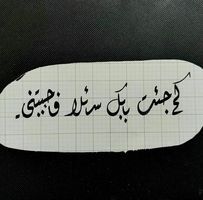 كم جئت بابك سائلا فاجبتني.